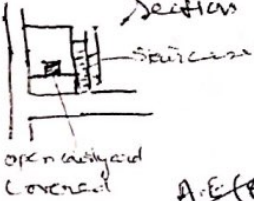 Section
Staircase
open courtyard
covered
A.E.(